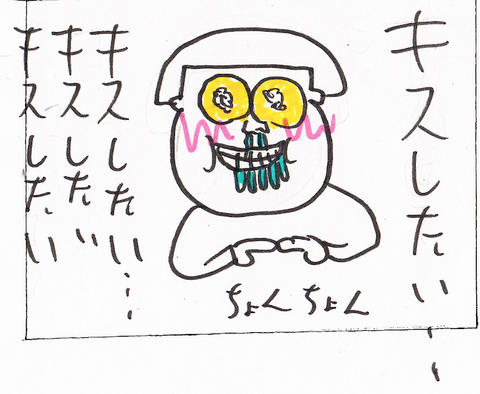 キスしたい…
キスしたい…
キスしたい
キスしたい
ちょんちょん